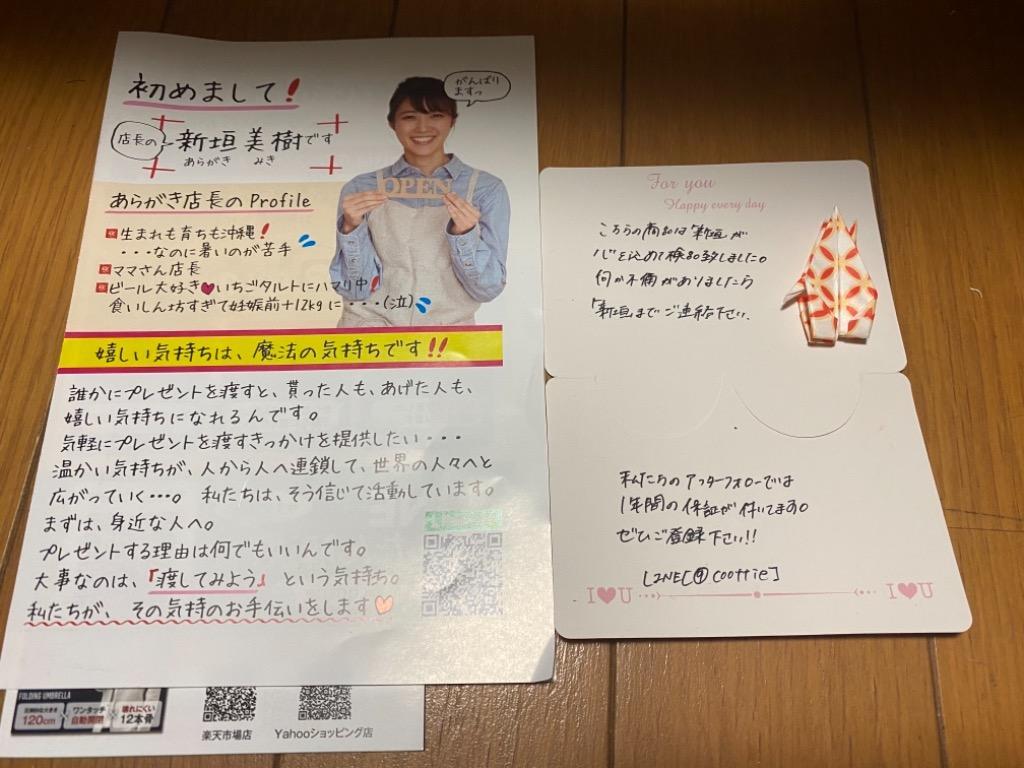 初めまして!
がんばりますっ
店長の 新垣 美樹です
あらがき みき
OPEN
あらがき店長の Profile
生まれも育ちも沖縄!
・・・なのに暑いのが苦手
ママさん店長
ビール大好き♥いちごタルトにハマリ中!
食いしん坊すぎて妊娠前+12kgに・・・(泣)
嬉しい気持ちは、魔法の気持ちです!!
誰かにプレゼントを渡すと、貰った人も、あげた人も、
嬉しい気持ちになれるんです。
気軽にプレゼントを渡すきっかけを提供したい・・・
温かい気持ちが、人から人へ連鎖して、世界の人々へと
広がっていく・・・。 私たちは、そう信じて活動しています。
まずは、身近な人へ。
プレゼントする理由は何でもいいんです。
大事なのは、『渡してみよう』 という気持ち。
私たちが、その気持のお手伝いをします♡
FOLDING UMBRELLA
120cm
ワンタッチ
自動開閉
壊れにくい
12本骨
楽天市場店
Yahooショッピング店
For you
Happy every day
こちらの商品は「新垣」が
心を込めて検品致しました。
何か不備がありましたら
「新垣」までご連絡下さい。
私たちのアフターフォローでは
1年間の保証が付いてます。
ぜひご登録下さい!!
LINE[@coottie]
I♥U
I♥U